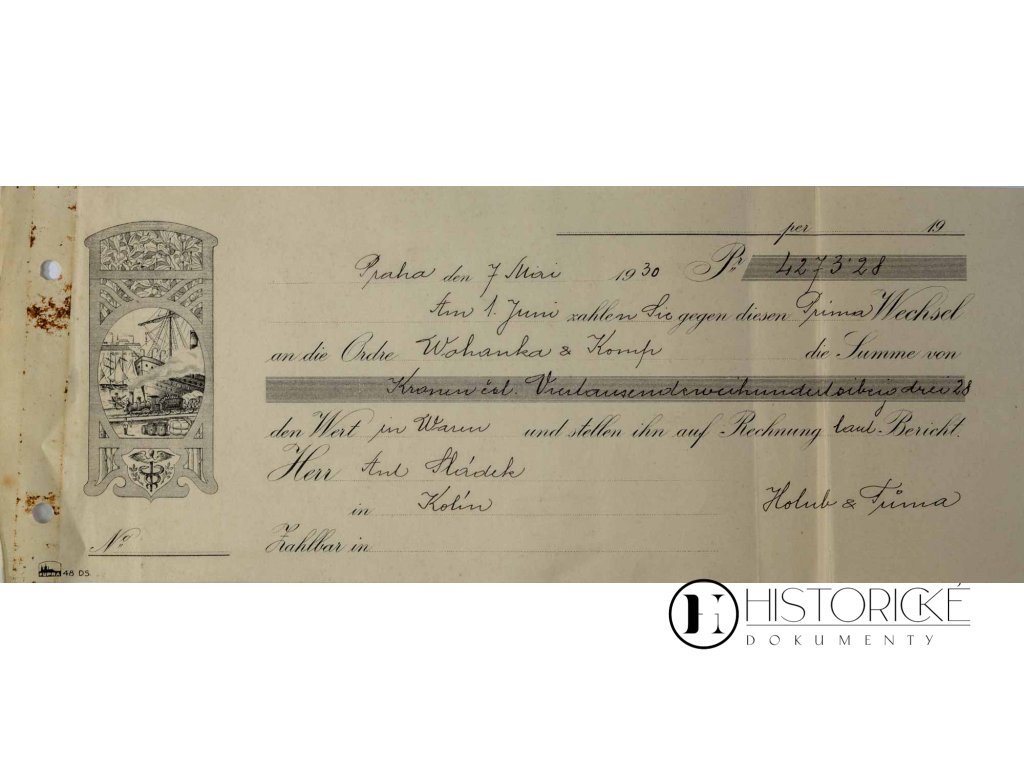 per 19
Praha den 7 Mai 1930 Pr 4273·28
Am 1. Juni zahlen Sie gegen diesen Prima Wechsel
an die Ordre Wohanka & Komp die Summe von
Kronen čsl. Viertausendzweihundertsiebzig drei 28
den Wert in Waren und stellen ihn auf Rechnung laut Bericht.
Herr Ant Sládek
in Kolín Holub & Tůma
Zahlbar in
No
48 DS.
HISTORICKÉ
DOKUMENTY